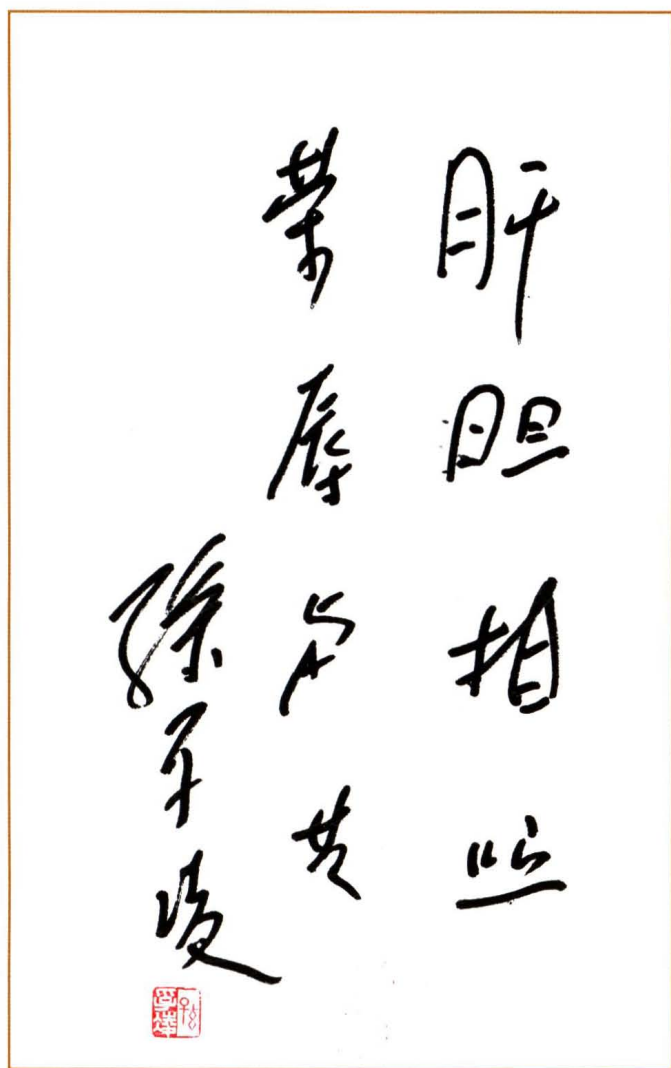 肝胆相照
荣辱与共
孫孚凌